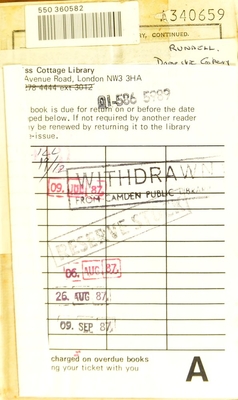 550 360582
A340659
RY, CONTINUED.
RUNDELL.
ss Cottage Library
Avenue Road, London NW3 3HA
278 4444 ext 3012
01-586 5989
book is due for return on or before the date
ped below. If not required by another reader
y be renewed by returning it to the library
-issue.
19/12
WITHDRAWN
FROM CAMDEN PUBLIC LIBRARY
09. JUL 87
RESERVE STOCK
06. AUG 87
26. AUG 87
09. SEP 87
charged on overdue books
ng your ticket with you
A